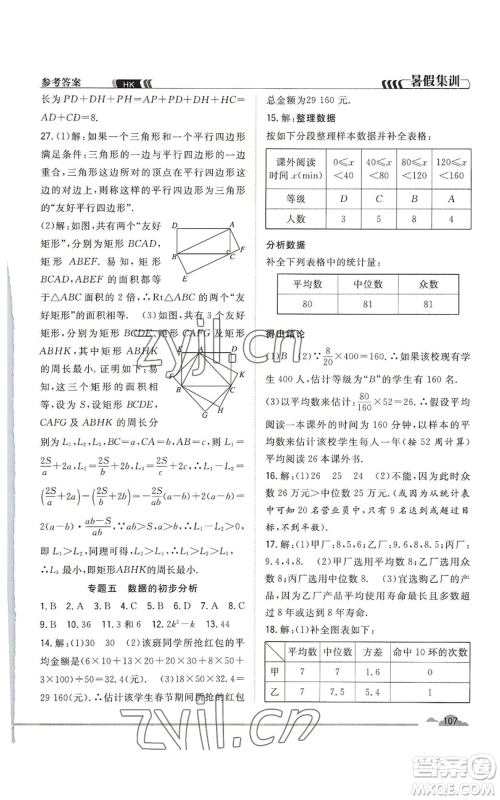 参考答案 HK
暑假集训
长为 PD+DH+PH=AP+DH+DH+HC=
AD+CD=8.
27. (1)解:如果一个三角形和一个平行四边形
满足条件:三角形的一边与平行四边形的一边
重合,三角形这边所对的顶点在平行四边形这
边的对边上,则称这样的平行四边形为三角形
的“友好平行四边形”.
(2)解:此时共有两个“友好
矩形”,分别为矩形 BCAD,
矩形 ABEF. 易知,矩形
BCAD、矩形 ABEF 的面积都等于
△ABC 面积的 2 倍,∴Rt△ABC 的“友
好矩形”的面积相等. (3)解:此时共有 3
个友好矩形,分别为矩形 BCDE、矩形 CAFG 及矩形
ABHK,其中矩形 ABHK
的周长最小. 证明如下:易
知,这三个矩形的面积相
等,设为 S. 设矩形 BCDE,
CAFG 及 ABHK 的周长分
别为 L₁,L₂,L₃,BC=a,CA=b,AB=c,则 L₁
=2S/a+2a,L₂=2S/b+2b,L₃=2S/c+2c. ∴L₁-L₂=
(2S/a+2a)-(2S/b+2b)=-2S/ab(a-b)+
2(a-b)=2(a-b)·(ab-S)/ab. ∵ab>S,a>b,∴L₁-L₂
>0,即 L₁>L₂,同理可得,L₂>L₃,∴L₁>L₂>
L₃. ∴L₃ 最小,即矩形 ABHK 的周长最小.
专题五 数据的初步分析
1. B 2. A 3. B 4. A 5. B 6. C 7. A 8. C
9. B 10. C 11. B 12. 2k²-k 13. 5 和 6
14. 解:(1)30 30 (2)该班同学所抢红包的平
均金额为(6×10+13×20+20×30+8×50+
3×100)÷50=32.4(元). (3)18×50×32.4=
29 160(元). ∴估计该学生春节期间所抢的红包
总金额为 29 160 元.
15. 解:整理数据
按如下分段整理样本数据并补全表格:
课外阅读时间 x(min) 0≤x<40 40≤x<80 80≤x<120 120≤x<160
等级 D C B A
人数 3 5 8 4
分析数据
补全下列表格中的统计量:
平均数 中位数 众数
80 81 81
得出结论
(1)B (2)∵8/20×400=160. ∴如果该校现有学
生 400 人,估计等级为“B”的学生有 160 名.
(3)以平均数来估计:80/160×52=26,∴以样本的平均
阅读一本课外书的时间为 160 分钟,以样本的平
均数来估计该校学生每人一年(按 52 周计算)
平均阅读 26 本课外书.
16. 解:(1)26 25 24 (2)不能,因为此时众
数 26 万元>中位数 25 万元 (或从统计表中
可知 20 名营业员中,只有 9 名达到或超过
目标,不到半数).
17. 解:(1)甲厂:8,5,6,8;乙厂:9.6,8.5,8,
9.4,4,8. (2)甲厂的销售广告利用了众数8;乙
厂的销售广告选用中位数 8. (3)宜选购乙厂的
产品. 因为乙厂产品使用寿命最长且多数超出
或达到 8 年的使用寿命.
18. 解:(1)补全图表如下:
平均数 中位数 方差 命中 10 环的次数
甲 7 7 1.6 0
乙 7 7.5 5.4 1
107
zyjl.cn
zyjl.cn
答案圈
MXQE.COM